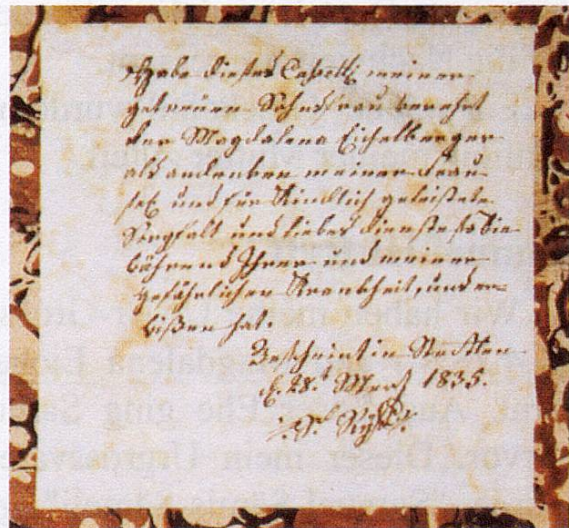 Habe dieses Casetli meiner
getreuen Sohnsfrau verehrt
der Magdalena Eichelberger
als andenken meiner Frau
sel. und für Kindlich geleistete
Sorgfalt und liebes dienste so Sie
während Ihrer und meiner
gefährlichen Krankheit, uns er-
wißen hat.
Bescheint in Stetten
d. 28.t Merz 1835.